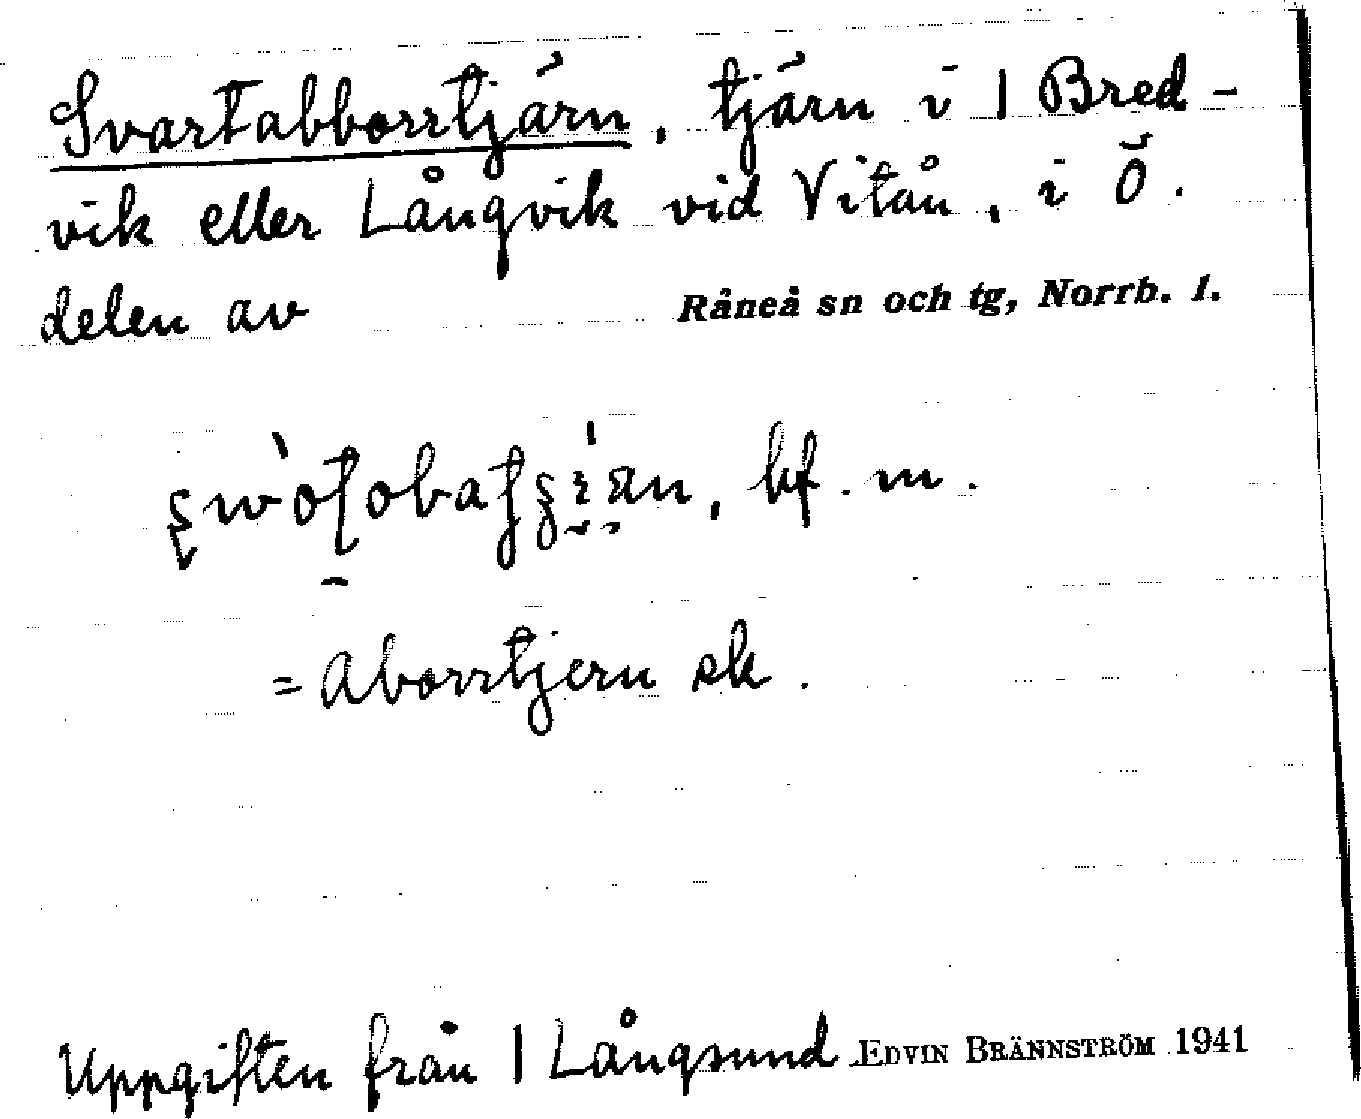 Svartabborrtjärn, tjärn i | Bred-
vik eller Långvik vid Vitån, i Ö.
delen av Råneå sn och tg, Norrb. l.
bf. m.
= Aborrtjern sk.
Uppgiften från | Långsund EDVIN BRÄNNSTRÖM 1941